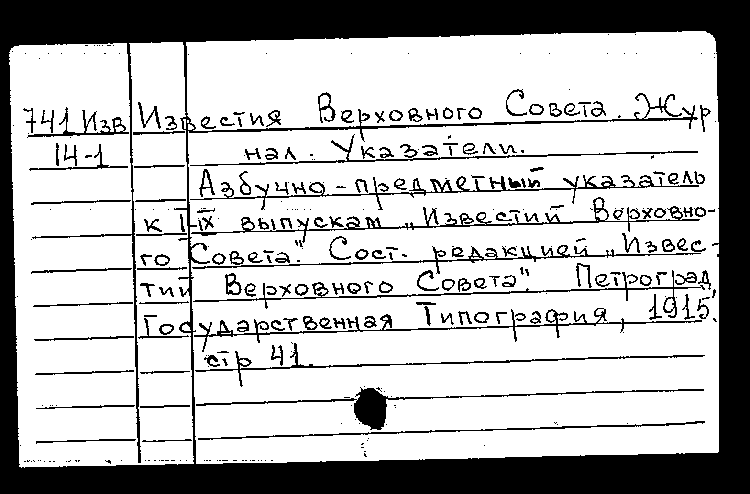 741 Изв Известия Верховного Совета. Жур
14-1 нал. Указатели.
Азбучно-предметный указатель
к I-IX выпускам „Известий Верховно-
го Совета". Сост. редакцией „Извес-
тий Верховного Совета". Петроград,
Государственная Типография, 1915.
стр 41.